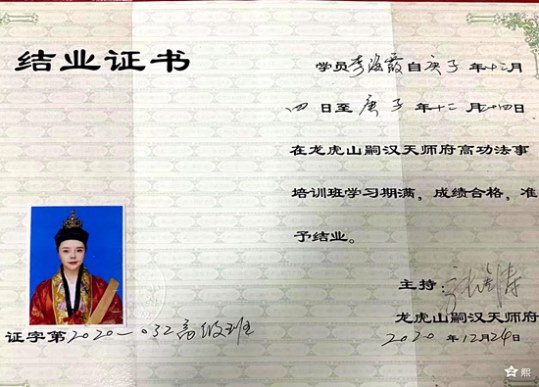 结业证书
学员李海霞自庚子年十二月
四日至庚子年十二月十四日
在龙虎山嗣汉天师府高功法事
培训班学习期满，成绩合格，准
予结业。
主持：
龙虎山嗣汉天师府
证字第2020-032高级班
2020年12月24日
熙